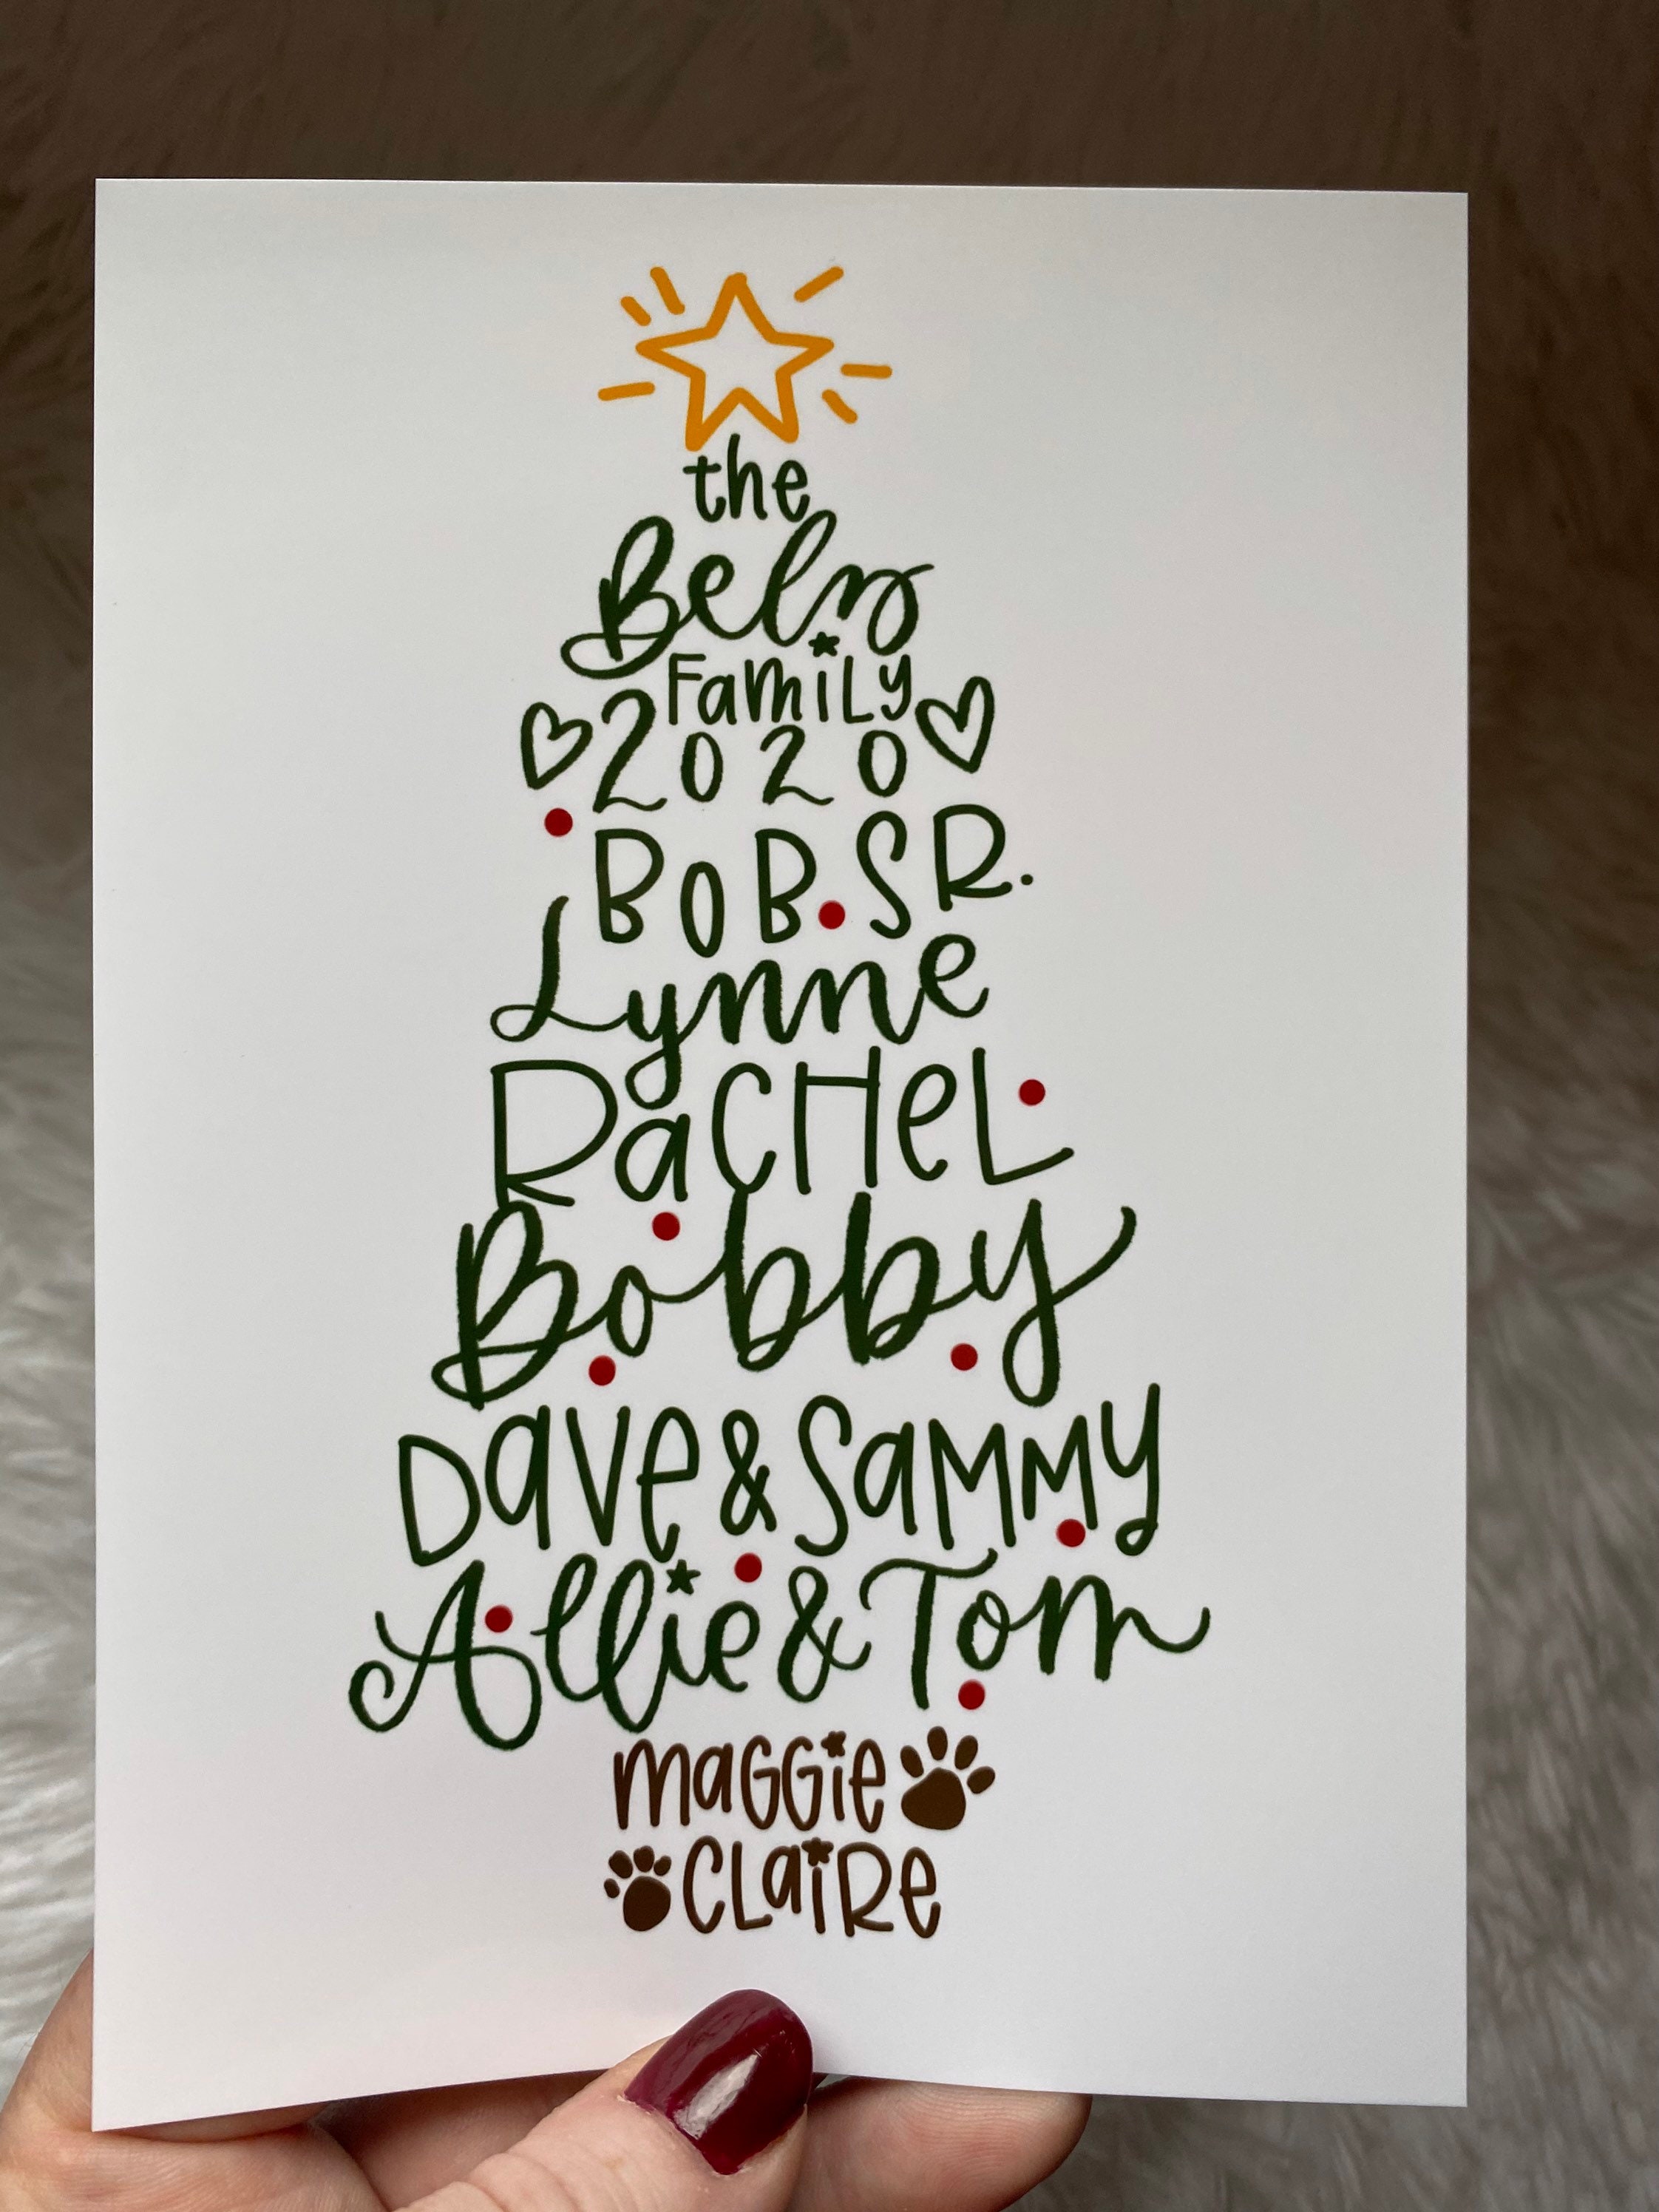 the
Bels
Family
2020
BOB SR.
Lynne
RacHeL
Bobby
Dave & Sammy
Allie & Tom
maGGie
CLaiRe